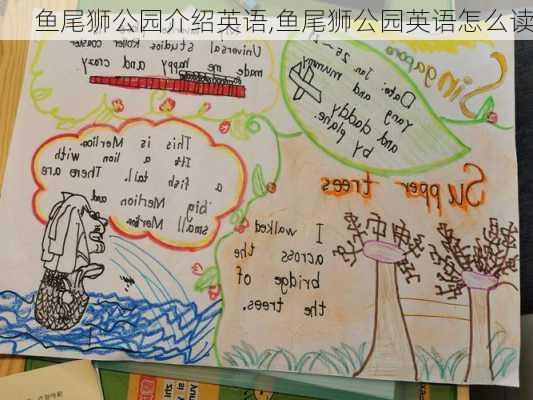 鱼尾狮公园介绍英语,鱼尾狮公园英语怎么读
Singapore
Date: Jan.
Yang and mummy
and daddy
by plane.
Universal studios. Roller coaster
made me happy and crazy
This is Merlion.
It's a lion with
a fish tail. There are
big Merlion and
small Merlion.
Supper trees
I walked
across the
bridge of
the trees.